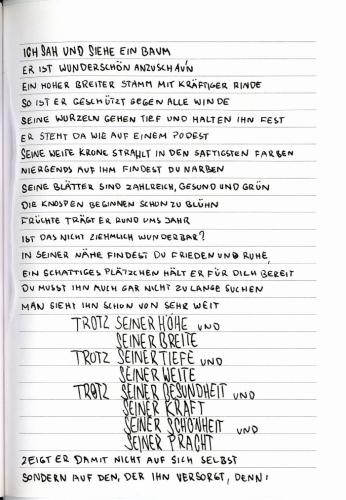 ICH SAH UND SIEHE EIN BAUM
ER IST WUNDERSCHÖN ANZUSCHAU'N
EIN HOHER BREITER STAMM MIT KRÄFTIGER RINDE
SO IST ER GESCHÜTZT GEGEN ALLE WINDE
SEINE WURZELN GEHEN TIEF UND HALTEN IHN FEST
ER STEHT DA WIE AUF EINEM PODEST
SEINE WEITE KRONE STRAHLT IN DEN SAFTIGSTEN FARBEN
NIERGENDS AUF IHM FINDEST DU NARBEN
SEINE BLÄTTER SIND ZAHLREICH, GESUND UND GRÜN
DIE KNOSPEN BEGINNEN SCHON ZU BLÜHN
FRÜCHTE TRÄGT ER RUND UMS JAHR
IST DAS NICHT ZIEHMLICH WUNDERBAR?
IN SEINER NÄHE FINDEST DU FRIEDEN UND RUHE,
EIN SCHATTIGES PLÄTZCHEN HÄLT ER FÜR DICH BEREIT
DU MUSST IHN AUCH GAR NICHT ZU LANGE SUCHEN
MAN SIEHT IHN SCHON VON SEHR WEIT
TROTZ SEINER HÖHE UND
SEINER BREITE
TROTZ SEINER TIEFE UND
SEINER WEITE
TROTZ SEINER GESUNDHEIT UND
SEINER KRAFT
SEINER SCHÖNHEIT UND
SEINER PRACHT
ZEIGT ER DAMIT NICHT AUF SICH SELBST
SONDERN AUF DEN, DER IHN VERSORGT, DENN: